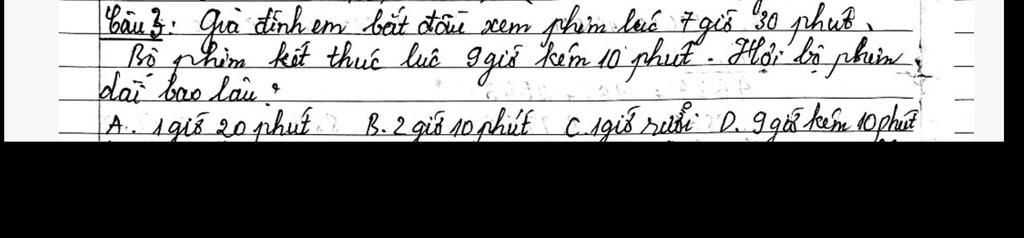 Câu 3: Gia đình em bắt đầu xem phim lúc 7 giờ 30 phút.
Bộ phim kết thúc lúc 9 giờ kém 10 phút. Hỏi bộ phim
dài bao lâu?
A. 1 giờ 20 phút B. 2 giờ 10 phút C. 1 giờ rưỡi D. 9 giờ kém 10 phút